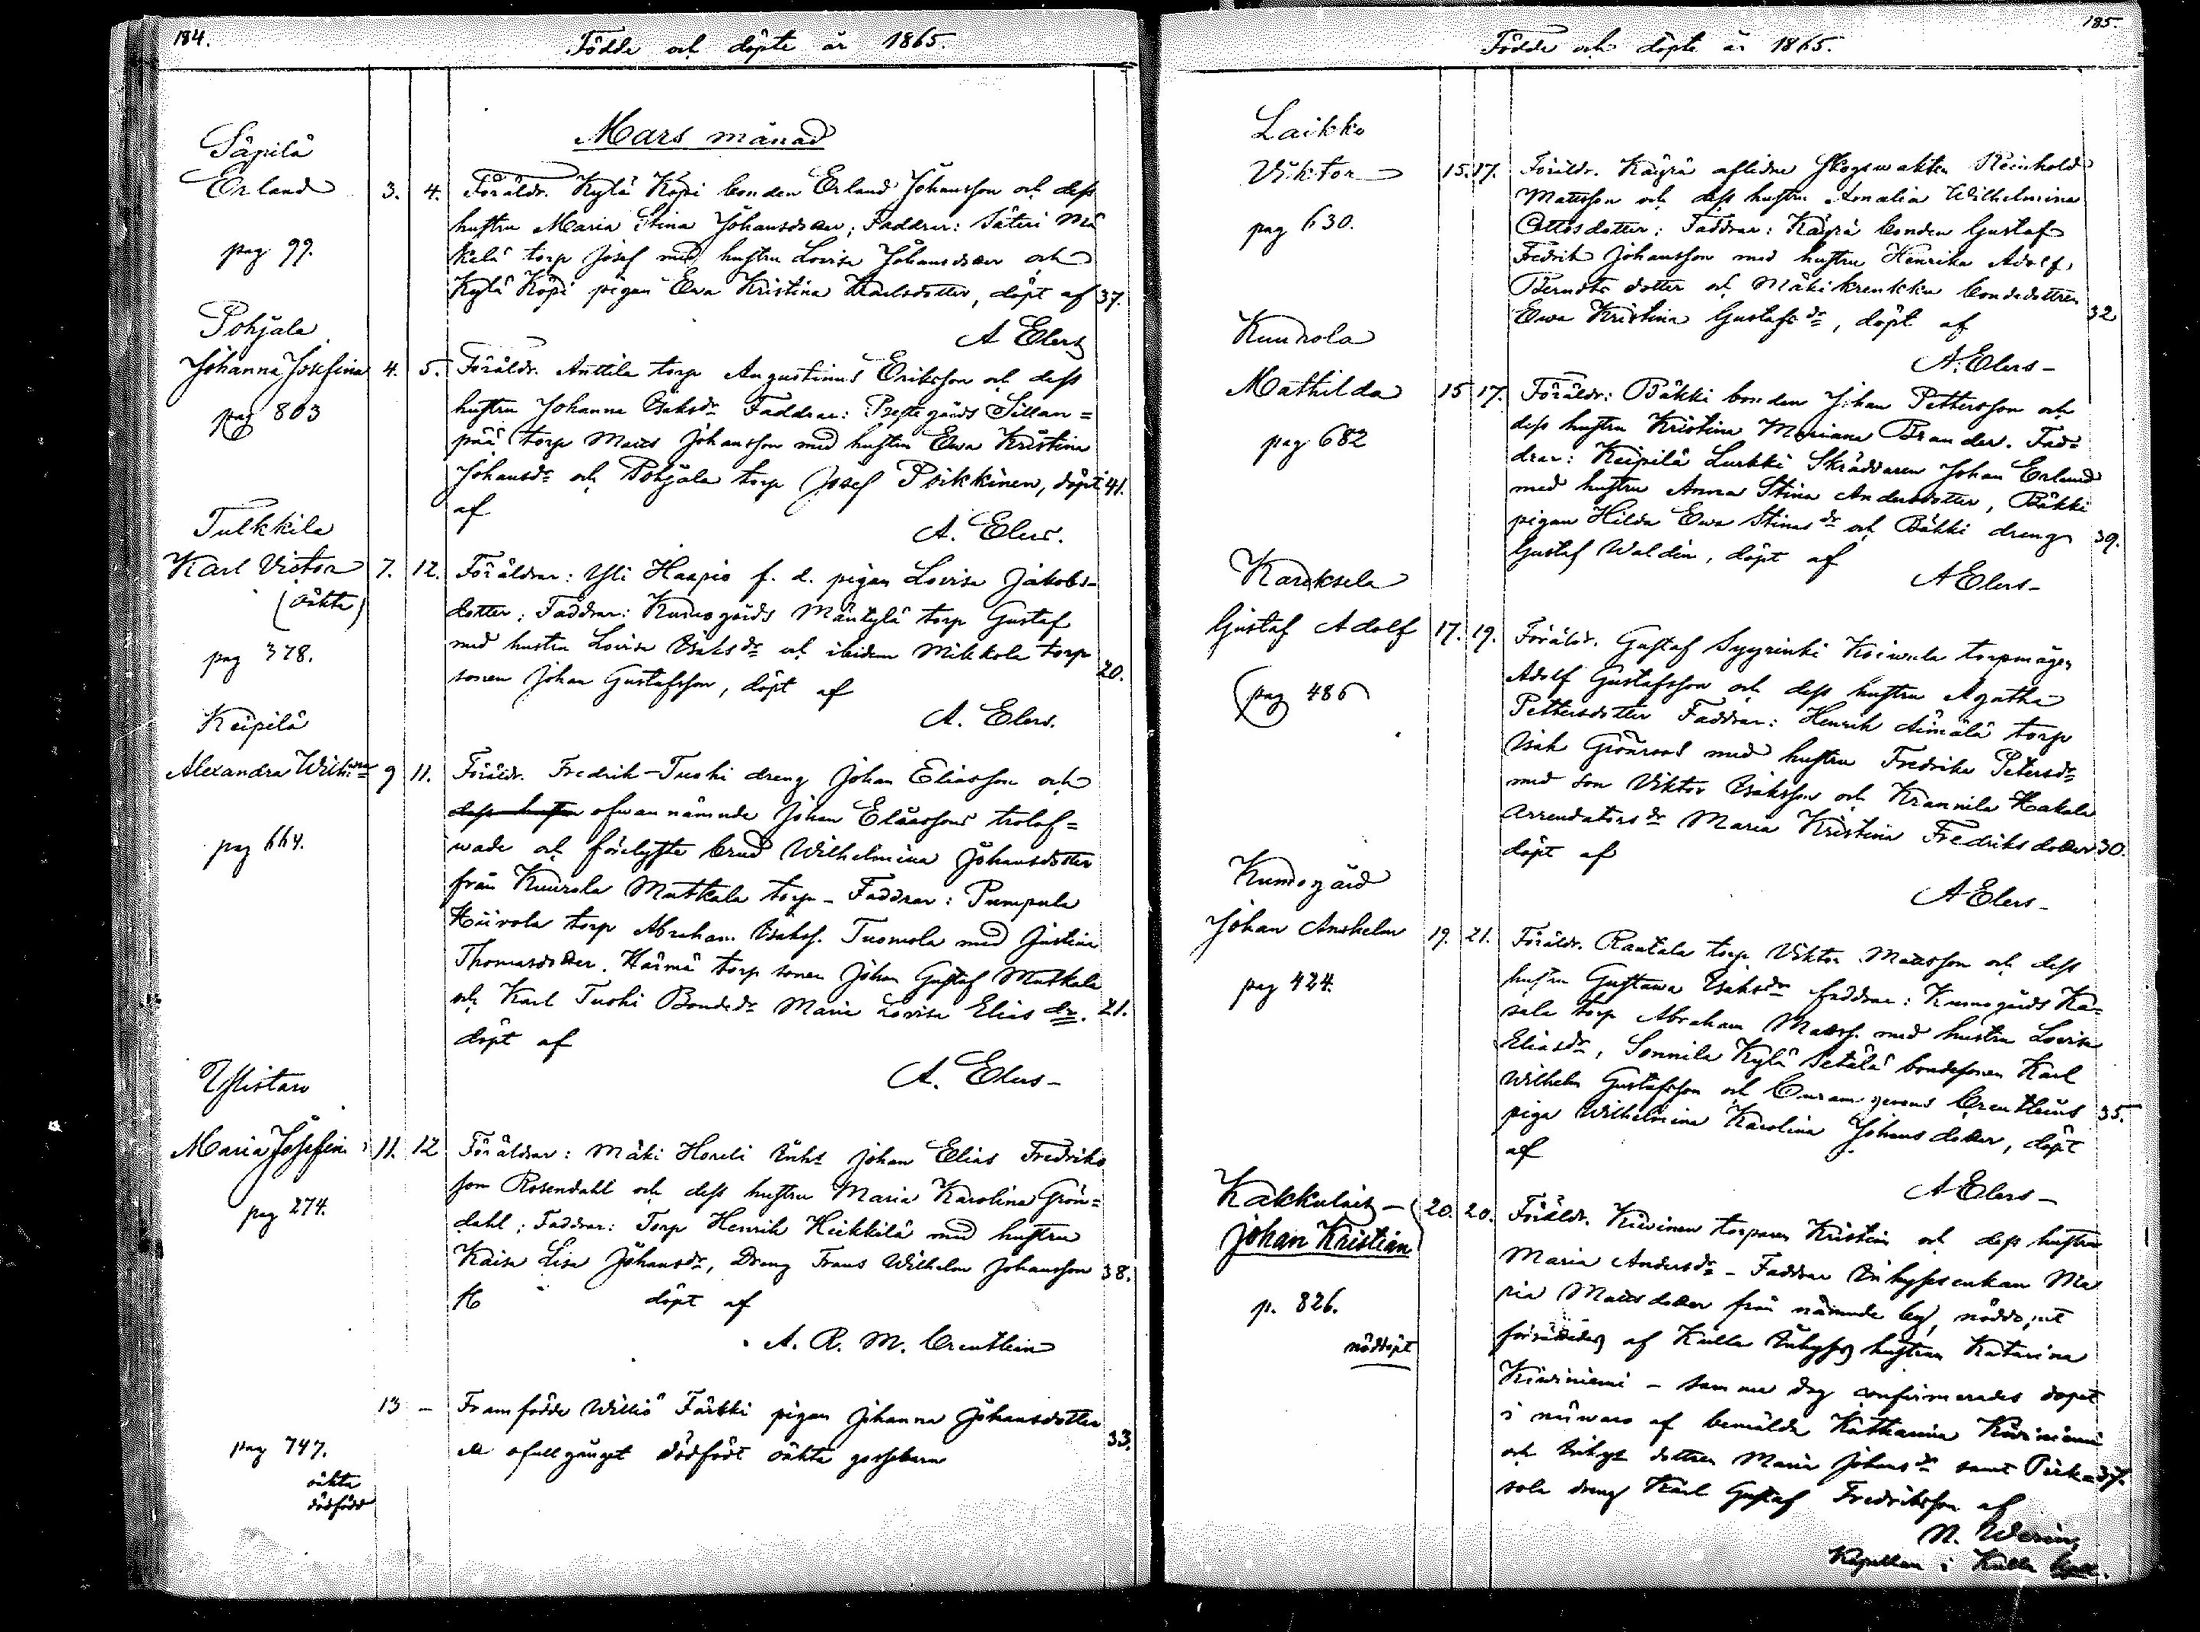 184.
Födde och döpte år 1865.
Mars månad
Säpilä
Erland 3. 4. Föräldr. Kylä Köpi bonden Erland Johansson och dess
hustru Maria Stina Johansdotter; Faddrar: Säteri Mä
pag 99.
kelä torp Josef med hustru Lovisa Johansdotter och
Kylä Köpi pigan Ewa Kristina Karlsdotter, döpt af 37.
A Elers
Pohjala
Johanna Josefina 4. 5. Föräldr. Anttila torp Augustinus Eriksson och dess
pag 803
hustru Johanna Isaksdr Faddrar: Prestgårds Sillan=
pää torp Matts Johansson med hustru Ewa Kristina
Johansdr och Pohjala torp Josef Poikkinen, döpt 41.
af
A. Elers.
Tulkkila
Karl Victor 7. 12. Föräldrar: Yli Haapio f. d. pigan Lovisa Jakobs-
(oäkta)
dotter; Faddrar: Kumogårds Mäntylä torp Gustaf
pag 378.
med hustru Lovisa Isaksdr och ibidem Mikkola torp
sonen Johan Gustafsson, döpt af 20.
A. Elers.
Keipilä
Alexandra Wilhna 9 11. Föräldr. Fredrik-Tuoki dreng Johan Eliasson och
dess hustru ofwannämnde Johan Eliassons trolof=
pag 664.
wade och förelyste brud Wilhelmina Johansdotter
från Kuurola Matkala torp - Faddrar: Pumpula
Hiirola torp Abraham Isakss. Tuomola med Justina
Thomasdotter. Härmä torp sonen Johan Gustaf Matkala
och Karl Tuoki Bondedr Maria Lovisa Elias dr. 21.
döpt af
A. Elers-
Ylistaro
Maria Josefina 11. 12 Föräldrar: Mäki Horeli Enks Johan Elias Fredriks
pag 274.
son Rosendahl och dess hustru Maria Karolina Grön=
dahl; Faddrar: Torp Henrik Heikkilä med hustru
Kaisa Lisa Johansdr, Dreng Frans Wilhelm Johansson 38.
döpt af
A. R. M. Creutlein
13 - Framfödde Williö Färkki pigan Johanna Johansdotter
pag 747.
ett ofullgånget dödfödt oäkta gossebarn 33.
oäkta
dödfödt
185.
Födde och döpte år 1865.
Laikko
Viktor 15. 17. Föräldr. Käyrä aflidne Skogswakten Reinhold
Mattsson och dess hustru Amalia Wilhelmina
pag 630.
Ottosdotter; Faddrar: Käyrä bonden Gustaf
Fredrik Johansson med hustru Henrika Adolf.
Berndts dotter och Mäkikrenkku bondedottren
Ewa Kristina Gustafsdr, döpt af 32
A. Elers-
Kuurola
Mathilda 15 17. Föräldr: Bäkki bonden Johan Pettersson och
dess hustru Kristina Mariana Brander. Fad=
pag 682
drar: Keipilä Lurkki Skräddaren Johan Erland
med hustru Anna Stina Andersdotter, Bäkki
pigan Hilda Ewa Stinas dr och Bäkki dreng 39.
Gustaf Waldén, döpt af
A Elers-
Karoksela
Gustaf Adolf 17. 19. Föräldr. Gustaf Syyrinki Koiwula torpmågen
Adolf Gustafsson och dess hustru Agatha
pag 486
Pettersdotter Faddrar: Henrik Äimälä torp
Isak Grönroos med hustru Fredrika Petersdr
med son Viktor Isaksson och Krannila Hakala
Arrendators dr Maria Kristina Fredriksdotter 30.
döpt af
A Elers-
Kumogård
Johan Anshelm 19. 21. Föräldr. Rantala torp Viktor Mattsson och dess
hustru Gustawa Isaksdr faddrar: Kumogårds Ka=
pag 424.
sala torp Abraham Matss. med hustru Lovisa
Eliasdr, Sonnila Kylä Setälä bondesonen Karl
Wilhelm Gustafsson och Curam gerens Creutleins 35.
piga Wilhelmina Karolina Johansdotter, döpt
af
A Elers-
Kakkulais -
Johan Kristian 20. 20. Föräldr. Kiwinen torparen Kristian och dess hustru
Maria Andersdr - Faddrar Inhysesenkan Ma
p. 826.
ria Mattsdotter från nämnde by, nöddopet
nöddöpt
förrättades af Kulla Inhyses hustrun Katarina
Kiwiniemi - samma dag confirmerades dopet
i närwaro af bemälda Katharina Kiwiniemi
och Inhys dottren Maria Johans dr samt Pirk= 37.
sola dreng Karl Gustaf Fredriksson af
Kapellan i Kulla